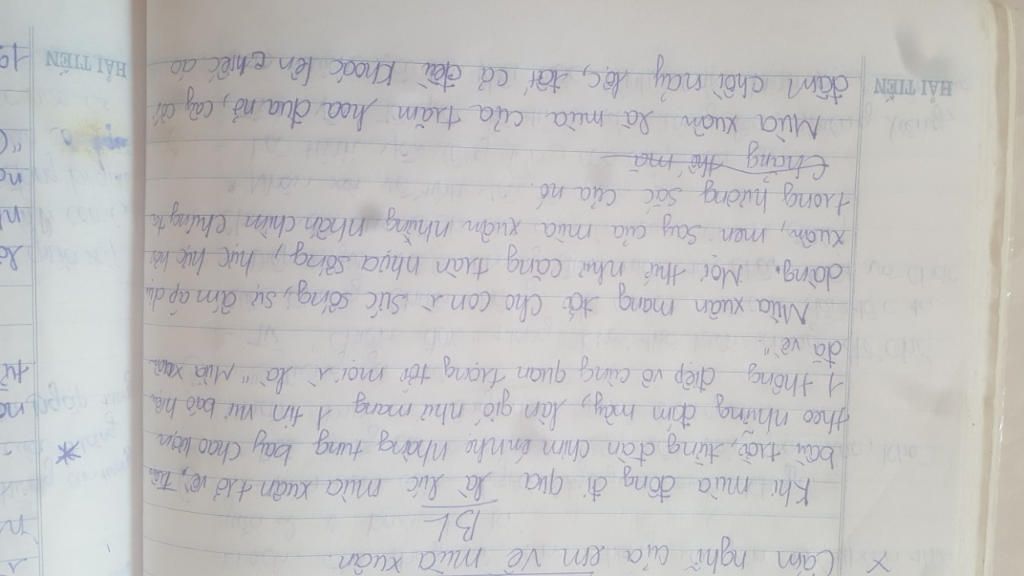 x Cảm nghĩ của em về mùa xuân.
BL
Khi mùa đông đi qua là lúc mùa xuân trở về, Trên
bầu trời, từng đàn chim én nhẹ nhàng tung bay chao lượn
theo những đám mây, làn gió như mang 1 tin vui báo hiệu
1 thông điệp vô cùng quan trọng tới mọi ng` là "Mùa xuân
đã về"
Mùa xuân mang tới cho con ng` sức sống, sự ấm áp dịu
dàng. Mọi thứ như căng tràn nhựa sống, hực hực
xuân, men say của mùa xuân những nhấn chìm chúng ta
trong hương sắc của nó.
Chẳng thế mà
Mùa xuân là mùa của trăm hoa đua nở, cây cối
đâm chồi nảy lộc, tất cả đều khoác lên chiếc áo
HẢI TIẾN
HẢI TIẾN
*